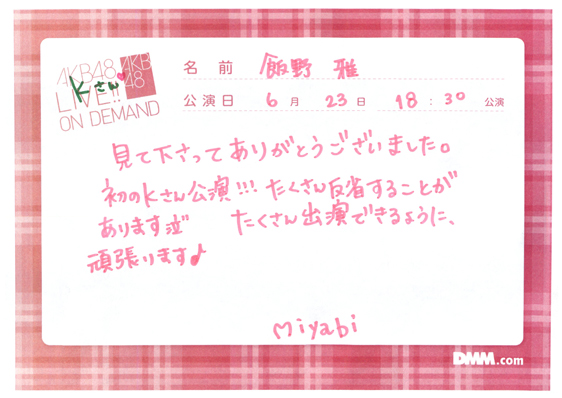 AKB48 AKB48
Kさん
LIVE!!
ON DEMAND
名前 飯野 雅
公演日 6月23日 18:30公演
見て下さってありがとうございました。
初のKさん公演!!! たくさん反省することが
あります泣 たくさん出演できるように、
頑張ります♪
miyabi
DMM.com